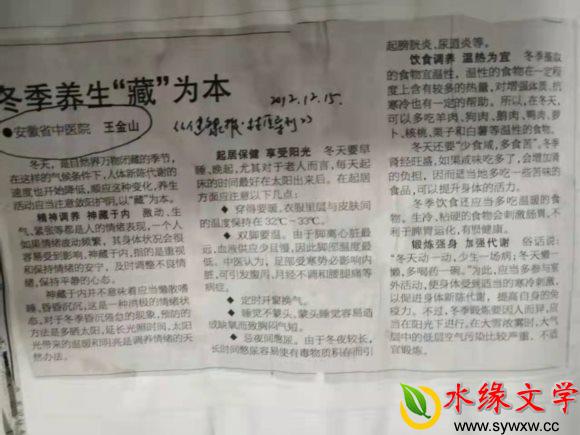 冬季养生“藏”为本
●安徽省中医院 王金山
2012.12.15.
冬天，是自然界万物闭藏的季节，
在这样的气候条件下，人体新陈代谢的
速度也开始降低，顺应这种变化，养生
活动应当注意敛阳护阴，以“藏”为本。
精神调养 神藏于内 激动、生
气、紧张等都是人的情绪表现，一个人
如果情绪波动频繁，其身体状况会很
容易受到影响，神藏于内，指的是重视
和保持情绪的安宁，及时调整不良情
绪，保持平静的心态。
神藏于内并不意味着应当懒散嗜
睡，昏昏沉沉，这是一种消极的情绪状
态，对于冬季昏沉倦怠的现象，预防的
方法是多晒太阳，延长光照时间，太阳
光带来的温暖和明亮是调养情绪的天
然办法。
起居保健 享受阳光 冬天要早
睡、晚起，尤其对于老人而言，每天起
床的时间最好在太阳出来后。在起居
方面应注意以下几点：
◆ 穿得要暖，衣服里层与皮肤间
的温度保持在32℃~33℃。
◆ 双脚要温。由于脚离心脏最
远，血液供应少且慢，因此脚部温度最
低。中医认为，足部受寒势必影响内
脏，可引发腹泻、月经不调和腰腿痛等
病症。
◆ 定时开窗换气。
◆ 睡觉不蒙头，蒙头睡觉容易造
成缺氧而致胸闷气短。
◆ 忌夜间憋尿。由于冬夜较长，
长时间憋尿容易使有毒物质积存而引
起膀胱炎、尿道炎等。
饮食调养 温热为宜 冬季摄取
的食物宜温性，温性的食物在一定程
度上含有较多的热量，对增强体质、抗
寒冷也有一定的帮助。所以，在冬天，
可以多吃羊肉、狗肉、鹅肉、鸭肉、萝
卜、核桃、栗子和白薯等温性的食物。
冬天还要“少食咸，多食苦”。冬季
肾经旺盛，如果咸味吃多了，会增加肾
的负担，因而适当地多吃一些苦味的
食品，可以提升身体的活力。
冬季饮食还应当多吃温暖的食
物，生冷、粘硬的食物会刺激肠胃，不
利于脾胃运化，有毁健康。
锻炼强身 加强代谢 俗话说：
“冬天动一动，少生一场病；冬天懒一
懒，多喝药一碗。”为此，应当多参与室
外活动，使身体受到适当的寒冷刺激，
以促进身体新陈代谢，提高自身的免
疫力。不过，冬季锻炼要因人而异，应
当在阳光下进行，在大雪浓雾时，大气
层中的低层空气污染比较严重，不适
宜锻炼。
水缘文学
www.sywxw.cc